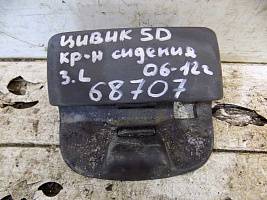 ЦИВИК 5D
кр-н сидения
3.L 06-12г
68707